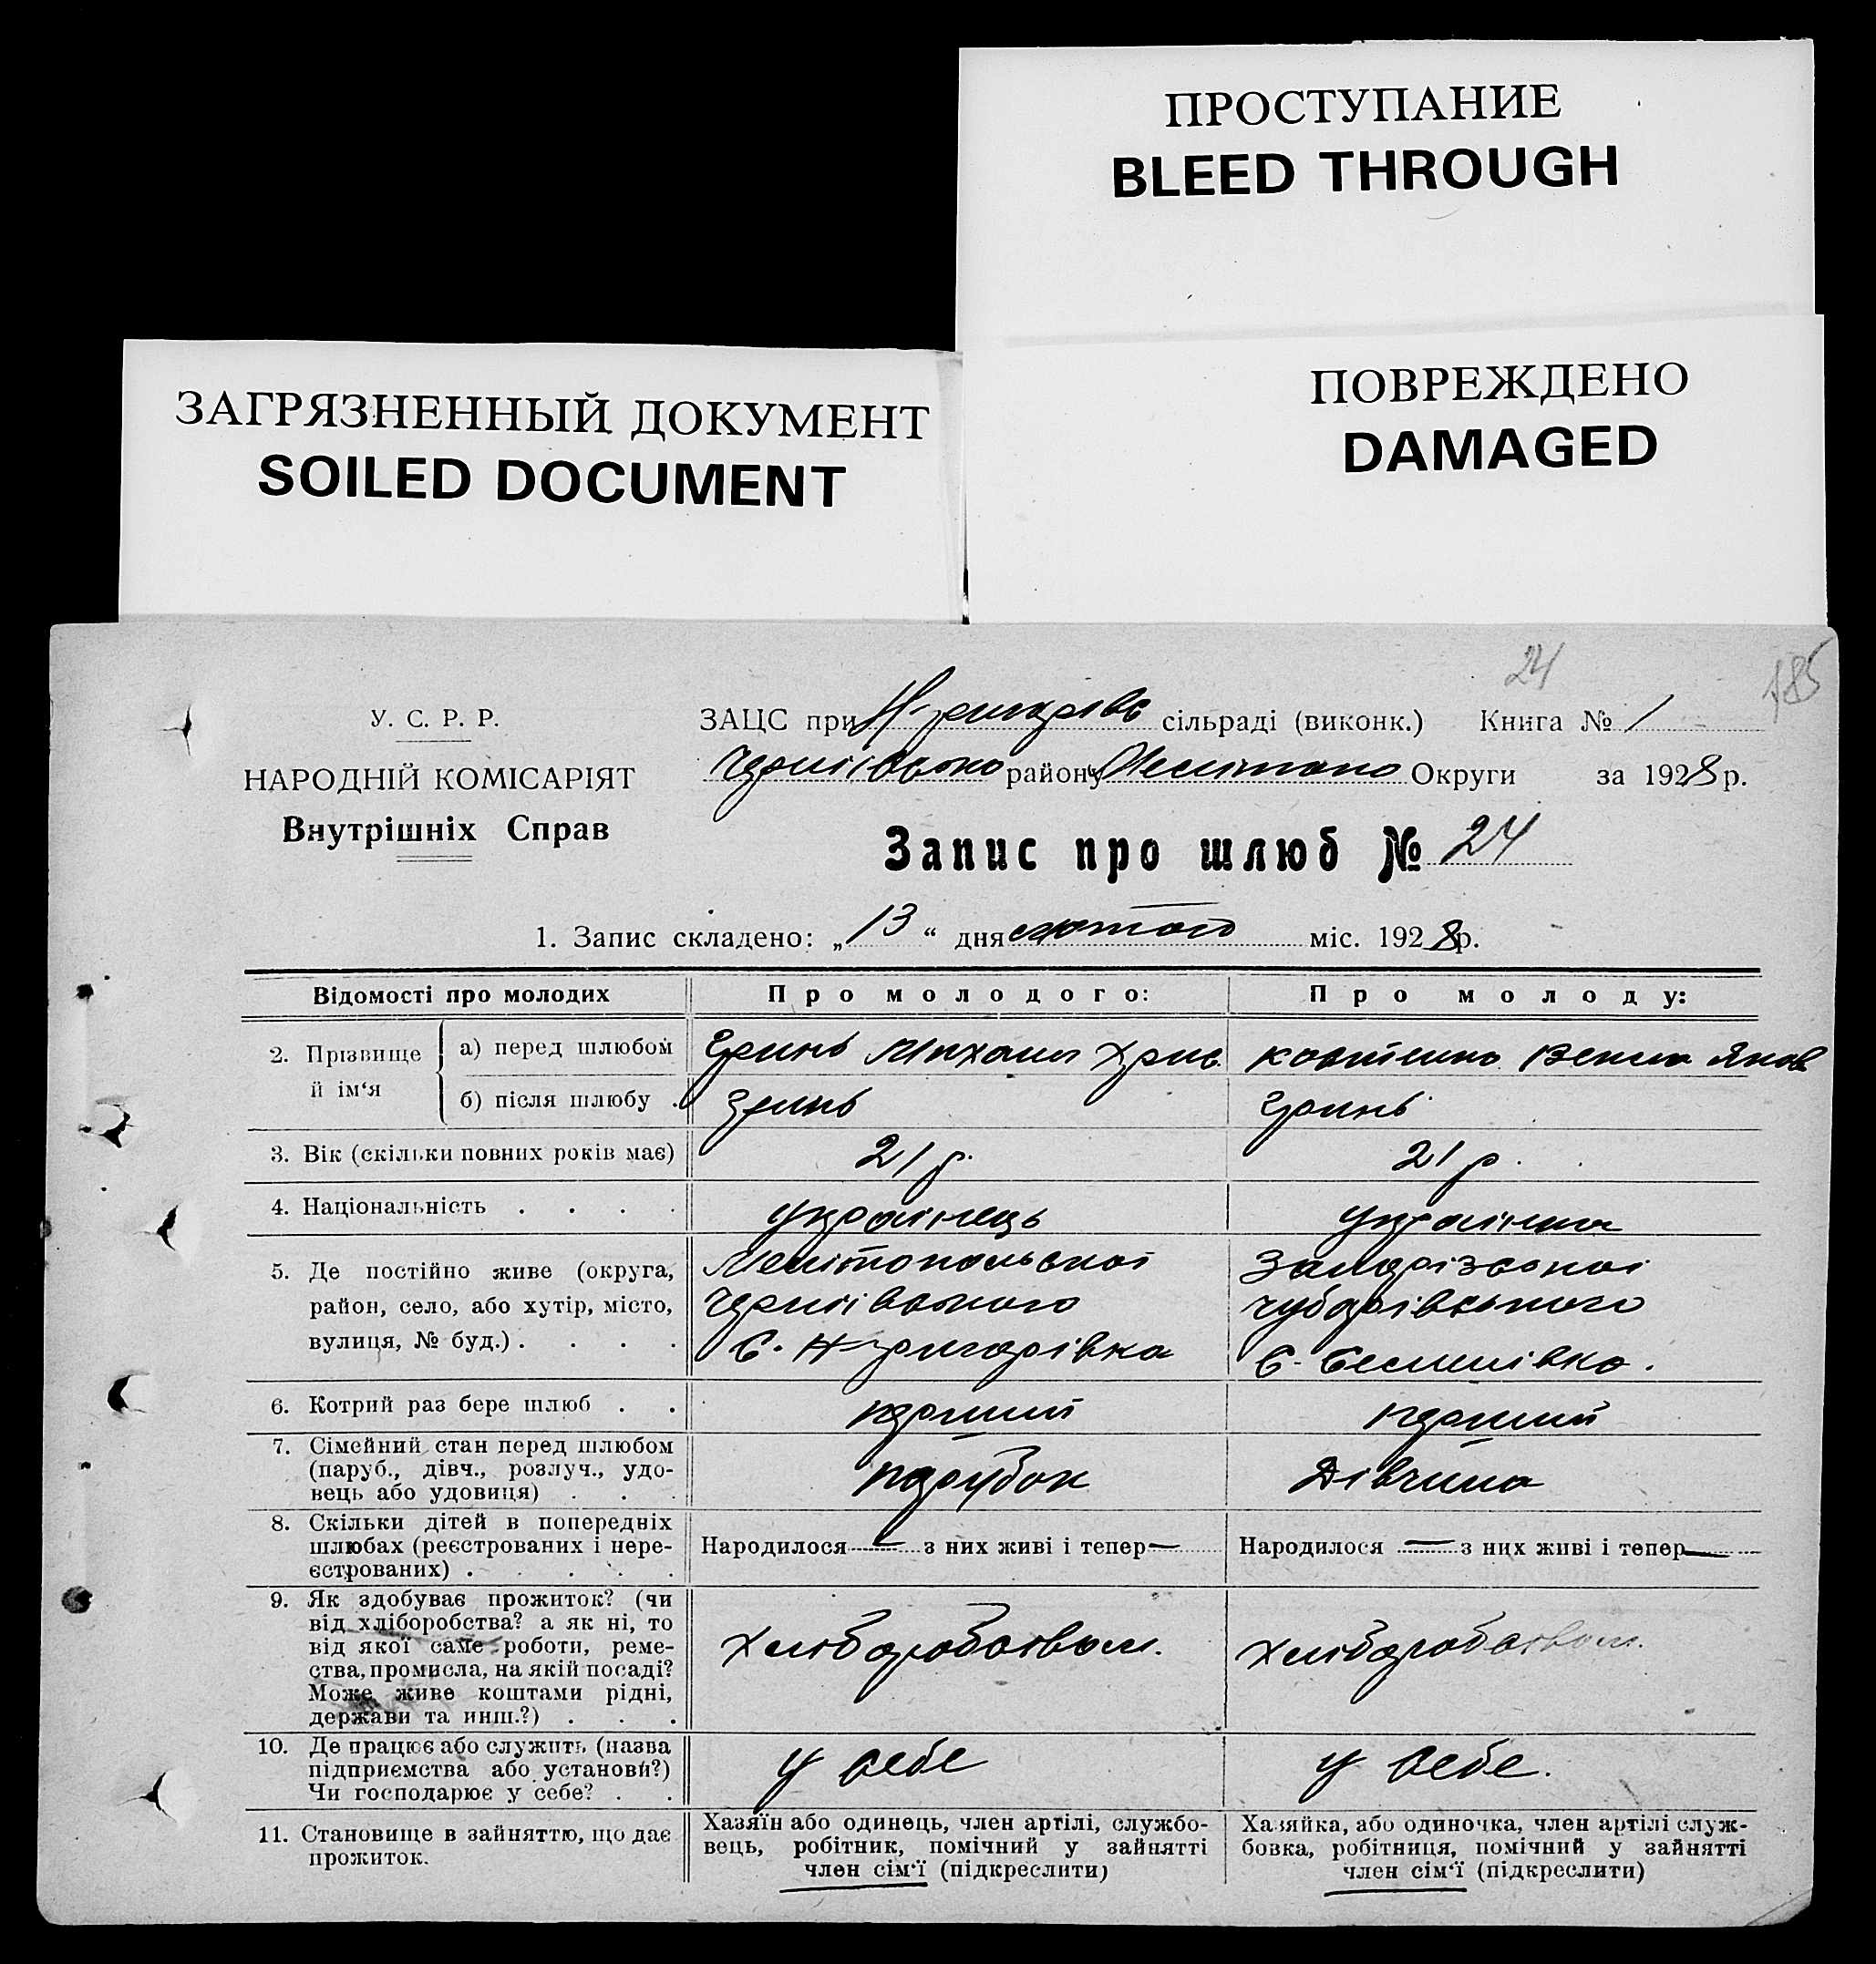 ПРОСТУПАНИЕ
BLEED THROUGH
ЗАГРЯЗНЕННЫЙ ДОКУМЕНТ
SOILED DOCUMENT
ПОВРЕЖДЕНО
DAMAGED
24
185
У. С. Р. Р.
НАРОДНІЙ КОМІСАРІЯТ
Внутрішніх Справ
ЗАЦС при Н-Григорівс сільраді (виконк.) Книга № 1
району Округи за 1928 р.
Запис про шлюб № 24
1. Запис складено: „13“ дня лютого міс. 1928 р.
Відомості про молодих Про молодого: Про молоду:
2. Прізвище й ім‘я
а) перед шлюбом Гринь Михаил Хрис Яков
б) після шлюбу . Гринь Гринь
3. Вік (скільки повних років має) 21 р. 21 р.
4. Національність . . . . українець українка
5. Де постійно живе (округа, район, село, або хутір, місто, вулиця, № буд.) . . . .
Мелітопольської
Чернігівського
с. Н-Григорівка
Запорізської
Чубарівського
с.
6. Котрий раз бере шлюб . . перший перший
7. Сімейний стан перед шлюбом
(паруб., дівч., розлуч., удо-
вець або удовиця) . . . парубок Дівчина
8. Скільки дітей в попередніх
шлюбах (реєстрованих і нере-
єстрованих) . . . . .
Народилося — з них живі і тепер — Народилося — з них живі і тепер —
9. Як здобуває прожиток? (чи
від хліборобства? а як ні, то
від якої саме роботи, реме-
ства, промисла, на якій посаді?
Може живе коштами рідні,
держави та инш.?) . . .
Хліборобством. Хліборобством.
10. Де працює або служить (назва
підприємства або установи?)
Чи господарює у себе? . .
у себе у себе.
11. Становище в зайняттю, що дає
прожиток.
Хазяїн або одинець, член артілі, службо-
вець, робітник, помічний у зайнятті
член сім‘ї (підкреслити)
Хазяйка, або одиночка, член артілі служ-
бовка, робітниця, помічний у зайнятті
член сім‘ї (підкреслити)